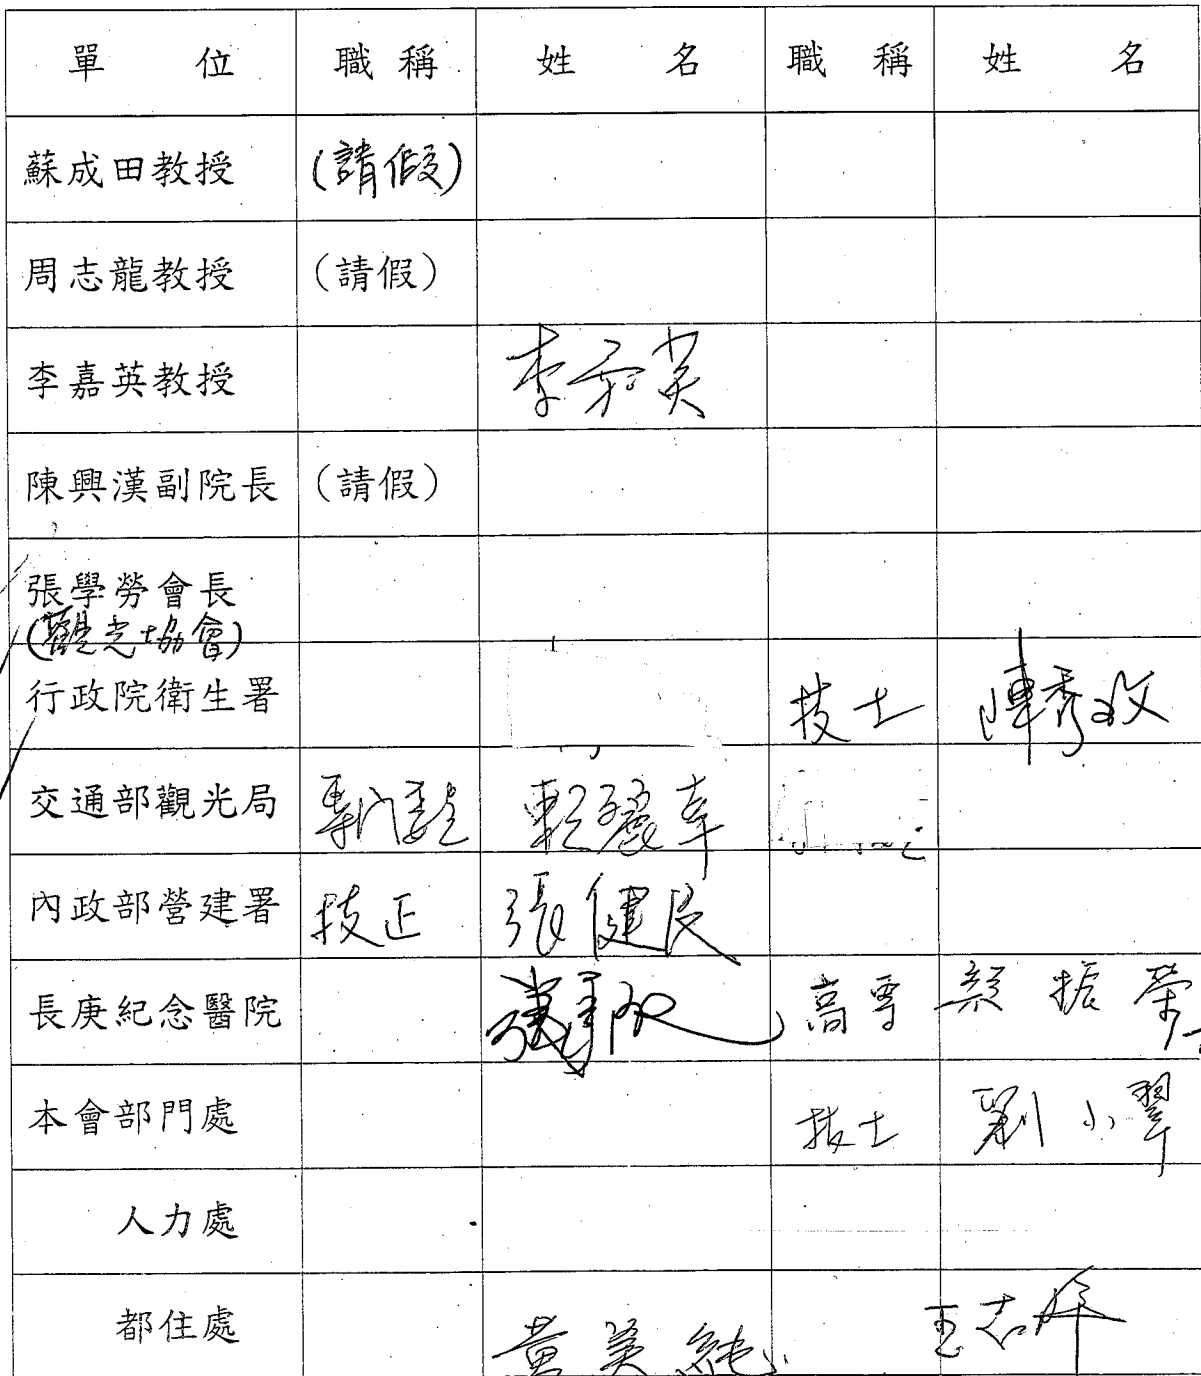 單位 職稱 姓名 職稱 姓名
蘇成田教授 (請假)
周志龍教授 (請假)
李嘉英教授 李嘉英
陳興漢副院長 (請假)
張學勞會長
(觀光協會)
行政院衛生署 技士 陳秀玫
交通部觀光局 專門委員 賴麗幸
內政部營建署 技正 張健民
長庚紀念醫院 高專 顏振榮
本會部門處 技士 劉小翠
人力處
都住處 黃美純